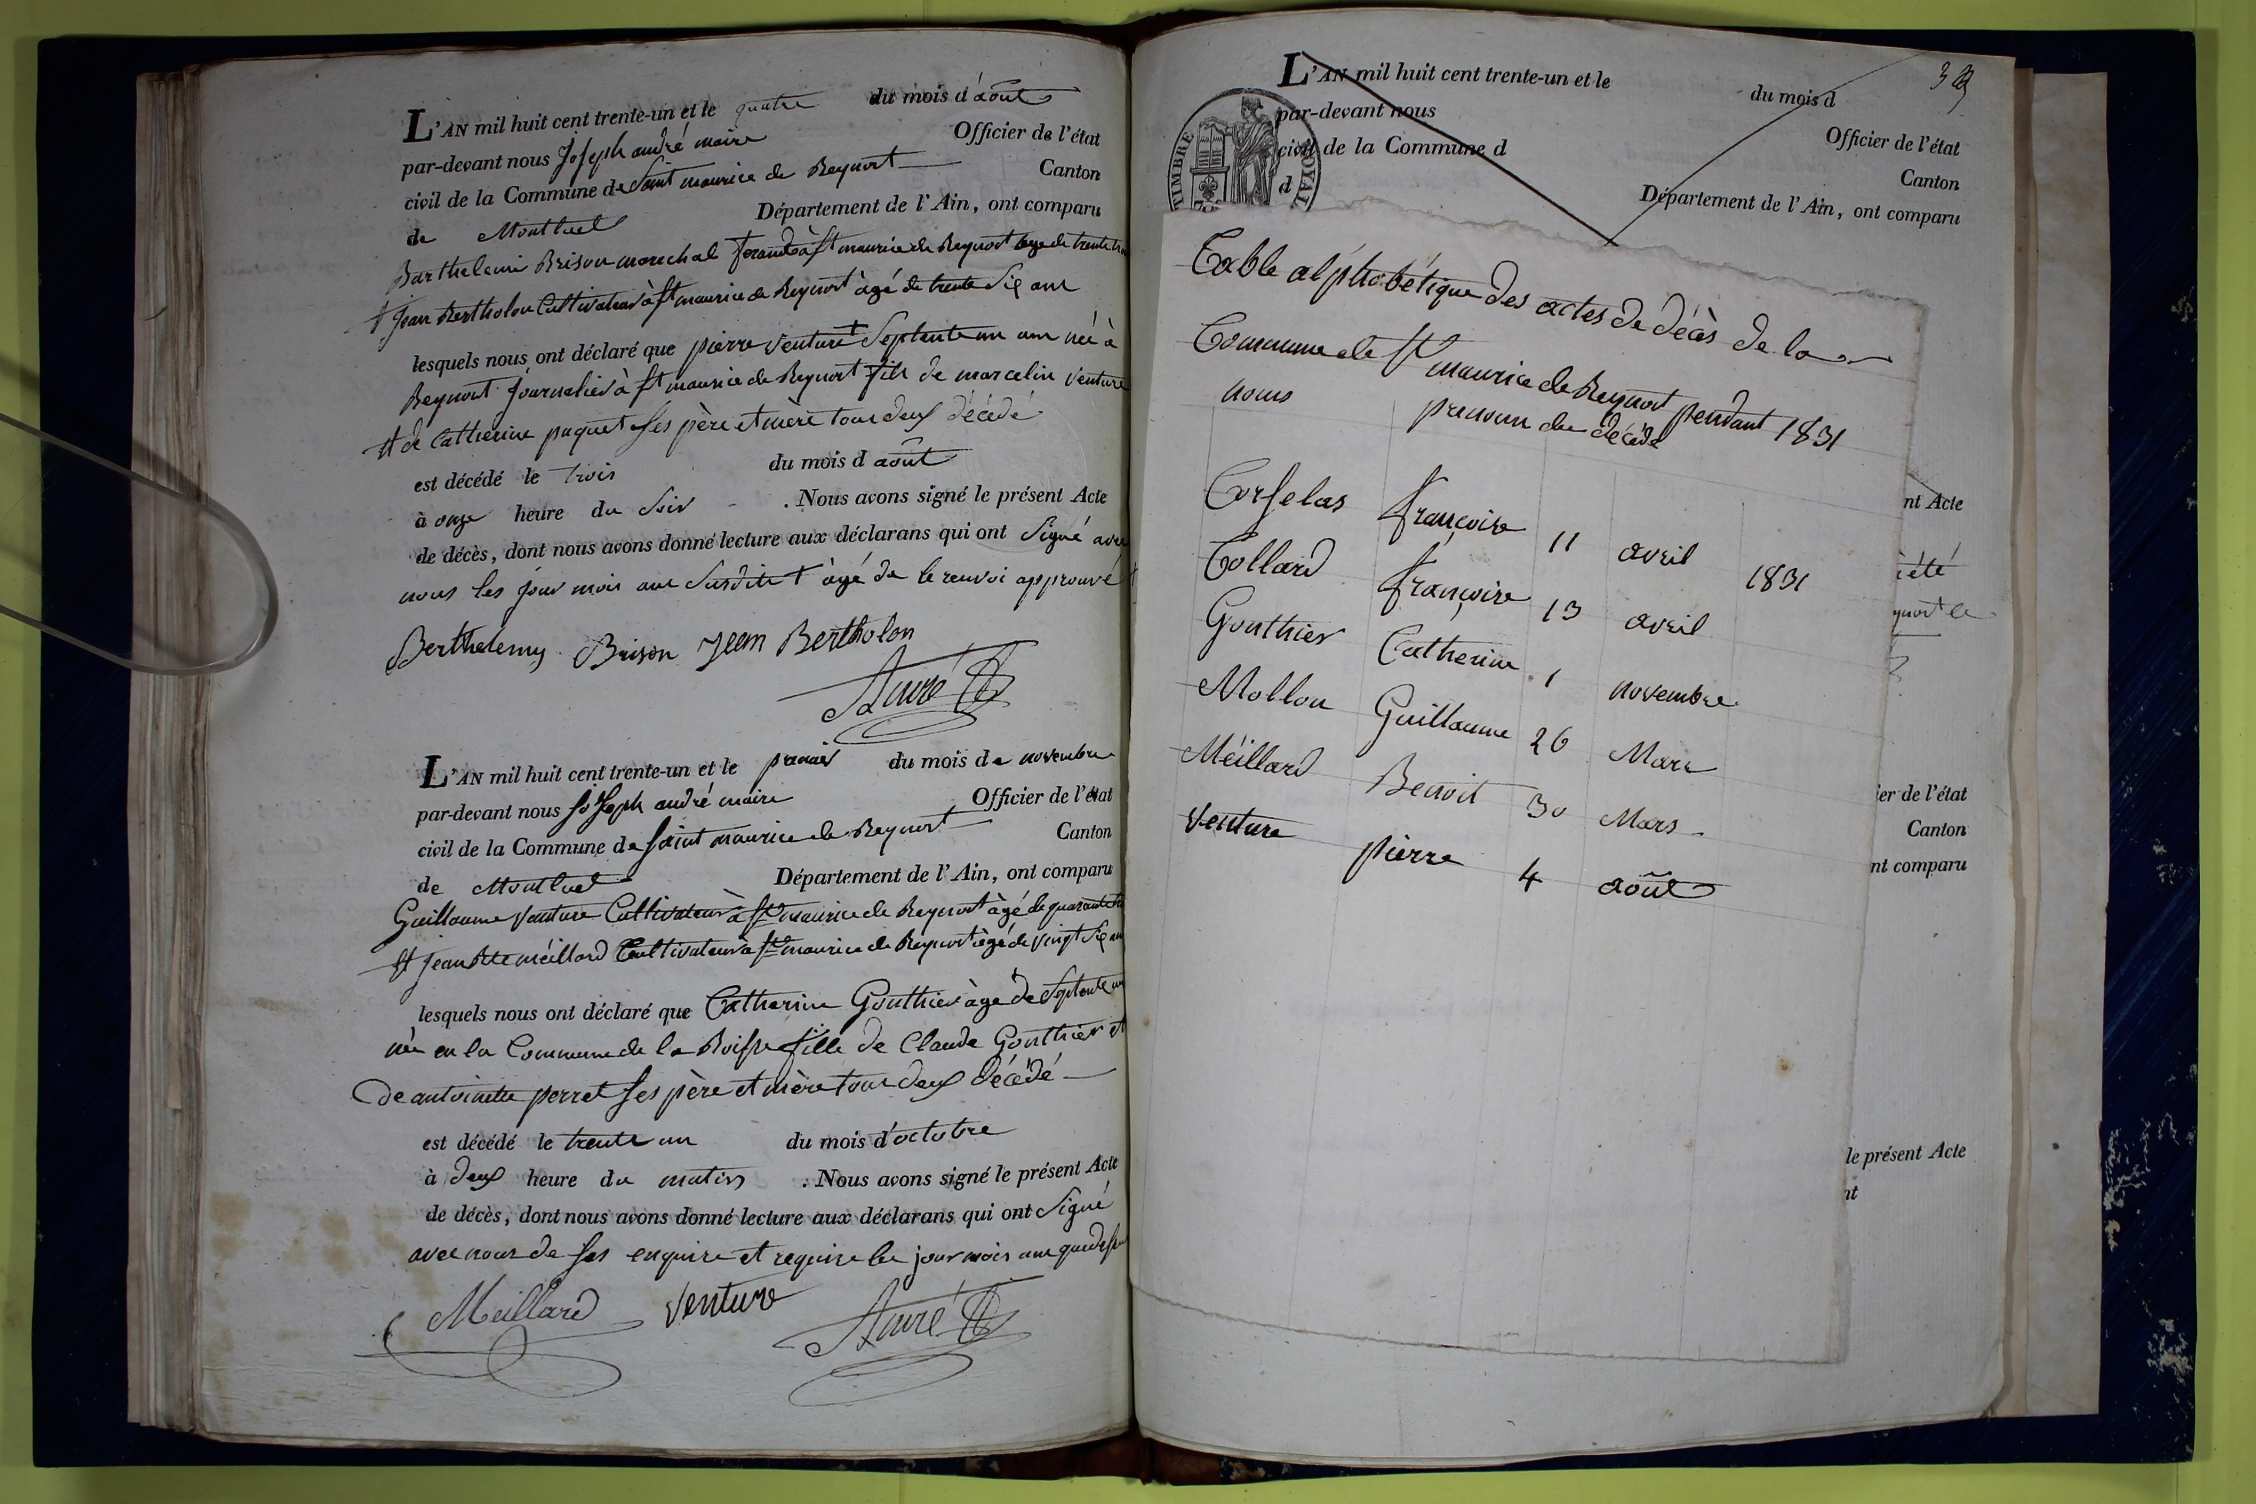 L'AN mil huit cent trente-un et le quatre du mois d'août
par-devant nous Joseph andré maire Officier de l'état
civil de la Commune de Saint maurice de Beynost Canton
de Montluel Département de l'Ain, ont comparu
Barthelemi Brison marechal ferand à St maurice de Beynost age de trente
et jean Bertholon Cultivateur à St maurice de Beynost âgé de trente Six ans
lesquels nous ont déclaré que pierre venture + Septente un ans né à
Beynost journalier à St maurice de Beynost fils de marcelin venture
et de Catherine paquet Ses père et mère tous deux décédé
est décédé le trois du mois d août
à onze heure du Soir . Nous avons signé le présent Acte
de décès, dont nous avons donné lecture aux déclarans qui ont Signé avec
nous les jour mois an Susdit + âgé de le renvoi approuvé
Berthelemy Brison Jean Bertholon
André
L'AN mil huit cent trente-un et le premier du mois de novembre
par-devant nous Joseph andré maire Officier de l'état
civil de la Commune de Saint maurice de Beynost Canton
de Montluel Département de l'Ain, ont comparu
Guillaume Venture Cultivateur à St maurice de Beynost âgé de quarante
et jean Bte méillard Cultivateur à St maurice de Beynost âgé de vingt Six ans
lesquels nous ont déclaré que Catherine Gonthier âgé de Septente
née en la Commune de la Boisse fille de Claude Gonthier et
de antoinette perret Ses père et mère tous deux décédé
est décédé le trente un du mois d'octobre
à deux heure du matin . Nous avons signé le présent Acte
de décès, dont nous avons donné lecture aux déclarans qui ont Signé
avec nous de Ses enquire et require les jour mois an que dessu
Meillard venture André
L'AN mil huit cent trente-un et le du mois d
par-devant nous Officier de l'état
civil de la Commune d Canton
d Département de l'Ain, ont comparu
TIMBRE ROYAL
Table alphabétique des actes de décès de la
Commune de St maurice de Beynost pendant 1831
noms prenom du décédé
Corselas françoise 11 avril 1831
Collard françoise 13 avril
Gonthier Catherine 1 novembre
Mollon Guillaume 26 Mars
Méillard Benoit 30 Mars
Venture pierre 4 août
nt Acte
été
ynost le
ier de l'état
Canton
nt comparu
le présent Acte
nt